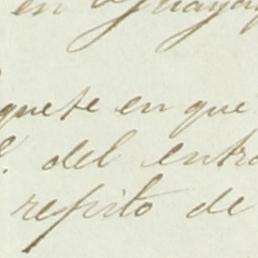 en Guayaq
quete en que
del entra
repito de